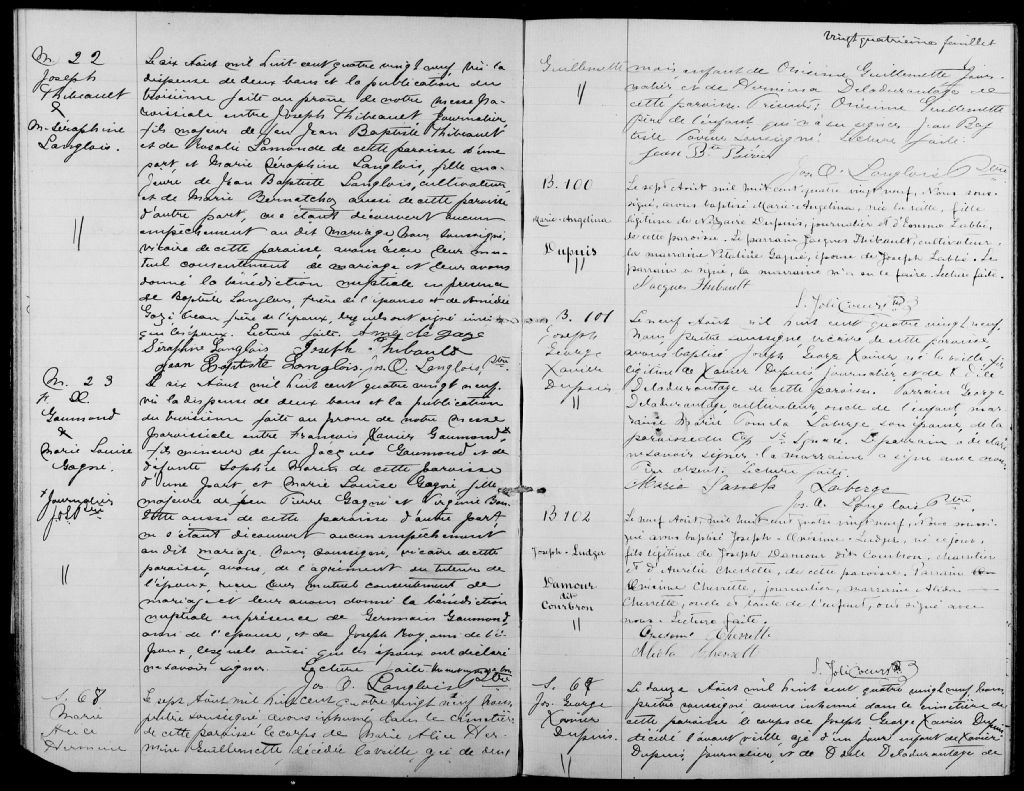 M. 22
Joseph
Thibeault
&
M. Séraphine
Langlois.
Le six Août mil huit cent quatre vingt neuf, vû la
dispense de deux bans et la publication du
troisième faite au prône de notre messe pa-
roissiale entre Joseph Thibeault, journalier,
fils majeur de feu Jean Baptiste Thibeault
et de Rosalie Lamonde de cette paroisse d'une
part et Marie Séraphine Langlois, fille ma-
jeure de Jean Baptiste Langlois, cultivateur,
et de Marie Bernatchez aussi de cette paroisse
d'autre part, ne s'étant découvert aucun
empêchement au dit mariage Nous, soussigné,
vicaire de cette paroisse avons reçu leur mu-
tuel consentement de mariage et leur avons
donné la bénédiction nuptiale en présence
de Baptiste Langlois, frère de l'épouse et de
père de l'époux, lesquels ont signé
que les époux. Lecture faite.
Séraphine Langlois Joseph Thibault
Jean Baptiste Langlois. Jos. O. Langlois Ptre
M. 23
F. X.
Gaumond
&
Marie Louise
Gagné.
x Journalier
J.O.L. Ptre
Le six Août mil huit cent quatre vingt neuf,
vû la dispense de deux bans et la publication
du troisième faite au prône de notre messe
paroissiale entre François Xavier Gaumond x
fils mineur de feu Jacques Gaumond et de
défunte Sophie Marier de cette paroisse
d'une part et Marie Louise Gagné fille
majeure de feu Pierre Gagné et Virginie
aussi de cette paroisse d'autre part,
ne s'étant découvert aucun empêchement
au dit mariage. Nous, soussigné, vicaire de cette
paroisse, avons, de l'agrément du tuteur de
l'époux, reçu leur mutuel consentement de
mariage et leur avons donné la bénédiction
nuptiale en présence de Germain Gaumond,
ami de l'épouse, et de Joseph Roy, ami de l'é-
poux, lesquels ainsi que les époux ont déclaré
ne savoir signer. Lecture faite
Jos. O. Langlois Ptre
S. 68
Marie
Alice
Hermine
Le sept Août mil huit cent quatre vingt neuf Nous,
prêtre soussigné avons inhumé dans le cimetière
de cette paroisse le corps de Marie Alice Her-
mine Guillemette, décédée la veille, agé de deux
Vingt quatrième feuillet
Guillemette
mois, enfant de Onésime Guillemette, jour-
nalier et de Hermina Deladurantaye de
cette paroisse. Présents; Onésime Guillemette
père de l'enfant, qui n'a su signer, Jean Bap
tiste Poirier soussigné. Lecture faite.
Jean Bte Poirier
Jos. O. Langlois Ptre
B. 100
Marie-Angelina
Dupuis
Le sept Août mil huit cent quatre vingt neuf, Nous sous-
signé, avons baptisé Marie-Angelina, née la veille, fille
légitime de Nazaire Dupuis, journalier et d'Emma Labbé,
de cette paroisse. Le parrain Jacques Thibault, cultivateur,
la marraine Vitaline Gagné, épouse de Joseph Labbé. Le
parrain a signé, la marraine n'a su le faire. Lecture faite.
Jacques Thibault
S. Jolicoeur Ptre
B. 101
Joseph
George
Xavier
Dupuis
Le neuf Août mil huit cent quatre vingt neuf.
Nous prêtre soussigné vicaire de cette paroisse,
avons baptisé Joseph George Xavier né la veille fils
légitime de Xavier Dupuis, journalier et de
Deladurantaye de cette paroisse. Parrain George
Deladurantaye, cultivateur, oncle de l'enfant, mar-
raine Marie Laberge, son épouse, de la
paroisse du Cap St. Ignace. Le parrain a déclaré
ne savoir signer. La marraine a signé avec nous.
Père absent. Lecture faite.
Marie Laberge
Jos. O. Langlois Ptre
B 102
Joseph-Ludger
Damour
dit
Courbron
Le neuf Août, mil huit cent quatre vingt neuf, Nous sous-
signé avons baptisé Joseph-Onésime-Ludger, né ce jour,
fils légitime de Joseph Damour dit Courbron, charretier
et d'Aurélie Chevrette, de cette paroisse. Parrain
Onésime Chevrette, journalier, marraine
Chevrette, oncle et tante de l'enfant, ont signé avec
nous. Lecture faite.
Onésime Chevrette
Chevrett
S. Jolicoeur Ptre
S. 69
Jos. George
Xavier
Dupuis.
Le douze Août mil huit cent quatre vingt neuf, Nous,
prêtre soussigné avons inhumé dans le cimetière de
cette paroisse le corps de Joseph George Xavier Dupuis
décédé l'avant veille agé d'un jour enfant de Xavier
Dupuis, journalier, et de Deladurantaye de